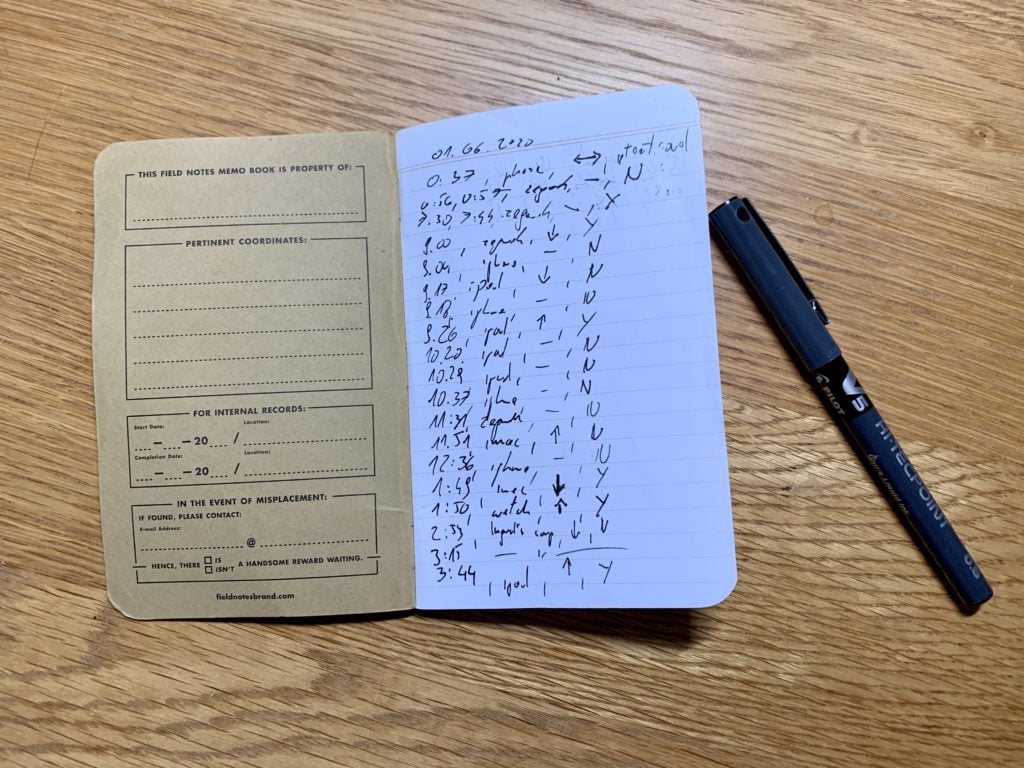 THIS FIELD NOTES MEMO BOOK IS PROPERTY OF:
PERTINENT COORDINATES:
FOR INTERNAL RECORDS:
Start Date: Location:
— — 20 /
Completion Date: Location:
— — 20 /
IN THE EVENT OF MISPLACEMENT:
IF FOUND, PLEASE CONTACT:
E-mail Address:
@
HENCE, THERE □ IS
□ ISN'T A HANDSOME REWARD WAITING.
fieldnotesbrand.com
01. 06 2020
0:37, phone, ↔,
0:56, 0:57, –, N
7:30, 7:44 –, Y
9.00, ↓, Y
9.04, iphone, –, N
9.17, ipad, ↓, N
9.18, iphone, –, N
9.26, ipad, ↑, Y
10.20, ipad, –, N
10.29, ipad, –, N
10:37, iphone –, N
11:31, –, N
11.51, imac, ↑, N
12:36, iphone, –, N
1:49, imac, ↓, Y
1:50, watch, ↑, Y
2:33, ↓, N
3:15, –,
3:44, ipad, ↑, Y
PILOT
V5
HI-TECPOINT
0.5